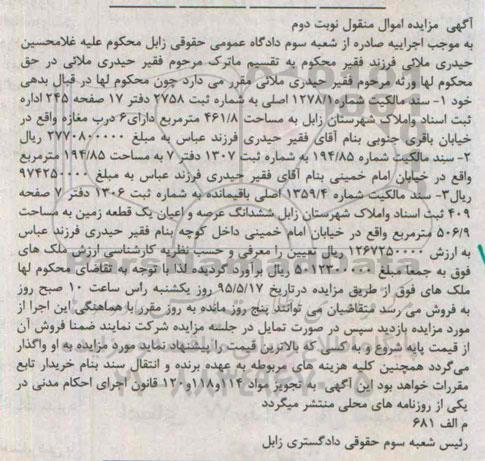 آگهی مزایده اموال منقول نوبت دوم
به موجب اجراییه صادره از شعبه سوم دادگاه عمومی حقوقی زابل محکوم علیه غلامحسین
حیدری ملائی فرزند فقیر محکوم به تقسیم ماترک مرحوم فقیر حیدری ملائی در حق
محکوم لها ورثه مرحوم فقیر حیدری ملائی مقرر می دارد چون محکوم لها در قبال بدهی
خود ۱- سند مالکیت شماره ۱۲۷۸/۱ اصلی به شماره ثبت ۲۷۵۸ دفتر ۱۷ صفحه ۲۴۵ اداره
ثبت اسناد واملاک شهرستان زابل به مساحت ۴۶۱/۸ مترمربع دارای۶ درب مغازه واقع در
خیابان باقری جنوبی بنام آقای فقیر حیدری فرزند عباس به مبلغ ۲۷۷۰۸۰۰۰۰۰ ریال
۲- سند مالکیت شماره ۱۹۴/۸۵ به شماره ثبت ۱۳۰۷ دفتر ۷ به مساحت ۱۹۴/۸۵ مترمربع
واقع در خیابان امام خمینی بنام آقای فقیر حیدری فرزند عباس به مبلغ ۹۷۴۲۵۰۰۰۰
ریال۳- سند مالکیت شماره ۱۳۵۹/۴ اصلی باقیمانده به شماره ثبت ۱۳۰۶ دفتر ۷ صفحه
۴۰۹ ثبت اسناد واملاک شهرستان زابل ششدانگ عرصه و اعیان یک قطعه زمین به مساحت
۵۰۶/۹ مترمربع واقع در خیابان امام خمینی داخل کوچه بنام فقیر حیدری فرزند عباس
به ارزش ۱۲۶۷۲۵۰۰۰۰ ریال تعیین را معرفی و حسب نظریه کارشناسی ارزش ملک های
فوق به جمعا مبلغ ۵۰۱۲۳۰۰۰۰۰ ریال برآورد گردیده لذا با توجه به تقاضای محکوم لها
ملک های فوق از طریق مزایده درتاریخ ۹۵/۵/۱۷ روز یکشنبه راس ساعت ۱۰ صبح روز
به فروش می رسد متقاضیان می توانند پنج روز مانده به روز مقرر با هماهنگی این اجرا از
مورد مزایده بازدید سپس در صورت تمایل در جلسه مزایده شرکت نمایند ضمنا فروش آن
از قیمت پایه شروع و به کسی که بالاترین قیمت را پیشنهاد نماید مورد مزایده به او واگذار
می‌گردد همچنین کلیه هزینه های مربوطه به عهده برنده و انتقال سند بنام خریدار تابع
مقررات خواهد بود این آگهی به تجویز مواد ۱۱۴و۱۱۸و۱۲۰ قانون اجرای احکام مدنی در
یکی از روزنامه های محلی منتشر میگردد
م الف ۶۸۱
رئیس شعبه سوم حقوقی دادگستری زابل